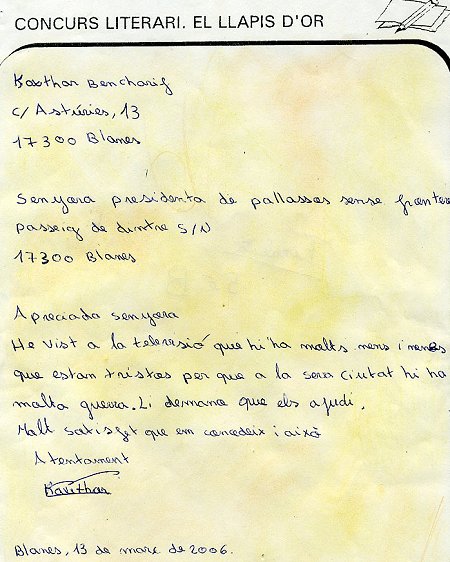 CONCURS LITERARI. EL LLAPIS D'OR
Kaothar Bencharif
c/ Astúries, 13
17300 Blanes
Senyora presidenta de pallassos sense fronteres
passeig de dintre S/N
17300 Blanes
Apreciada senyora
He vist a la televisió que hi ha molts nens i nenes
que estan tristos per que a la seva ciutat hi ha
molta guerra. Li demano que els ajudi.
Molt satisfet que em concedeix i això
Atentament
Kavithar
Blanes, 13 de març de 2006.